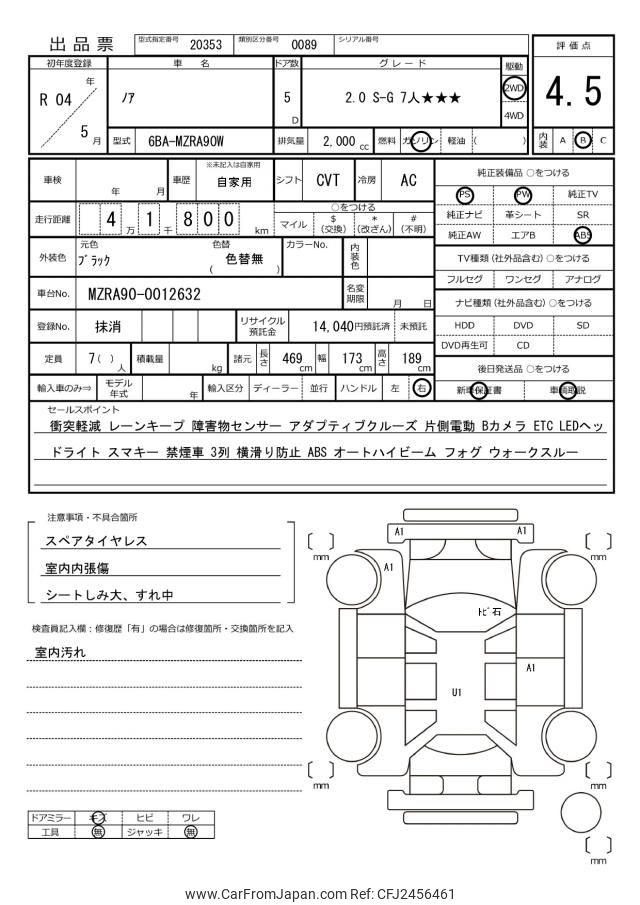 出品票 型式指定番号 20353 類別区分番号 0089 シリアル番号
評価点
4.5
初年度登録 車名 ドア数 グレード 駆動
R 04 年 / 5 月 ノア 5 D 2.0 S-G 7人★★★ 2WD
4WD
型式 6BA-MZRA90W 排気量 2,000 cc 燃料 ガソリン 軽油 ( ) 内装 A B C
車検 年 月 車歴 ※未記入は自家用 自家用 シフト CVT 冷房 AC
純正装備品 ○をつける
PS PW 純正TV
純正ナビ 革シート SR
純正AW エアB ABS
走行距離 4 万 1 千 8 0 0 km
○をつける
マイル $ (交換) * (改ざん) # (不明)
外装色 元色 ブラック 色替 ( 色替無 ) カラーNo. 内装色
TV種類(社外品含む) ○をつける
フルセグ ワンセグ アナログ
車台No. MZRA90-0012632 名変期限 月 日
ナビ種類(社外品含む) ○をつける
HDD DVD SD
DVD再生可 CD
登録No. 抹消 リサイクル預託金 14,040円預託済 未預託
定員 7( ) 人 積載量 kg 諸元 長さ 469 cm 幅 173 cm 高さ 189 cm
後日発送品 ○をつける
新車保証書 車輌取説
輸入車のみ⇒ モデル年式 年 輸入区分 ディーラー 並行 ハンドル 左 右
セールスポイント
衝突軽減 レーンキープ 障害物センサー アダプティブクルーズ 片側電動 Bカメラ ETC LEDヘッ
ドライト スマキー 禁煙車 3列 横滑り防止 ABS オートハイビーム フォグ ウォークスルー
注意事項・不具合箇所
スペアタイヤレス
室内内張傷
シートしみ大、すれ中
検査員記入欄：修復歴「有」の場合は修復箇所・交換箇所を記入
室内汚れ
A1 A1
mm mm
A1
トビ石
A1
U1
mm mm
mm
ドアミラー キズ ヒビ ワレ
工具 無 ジャッキ 無
www.CarFromJapan.com Ref: CFJ2456461